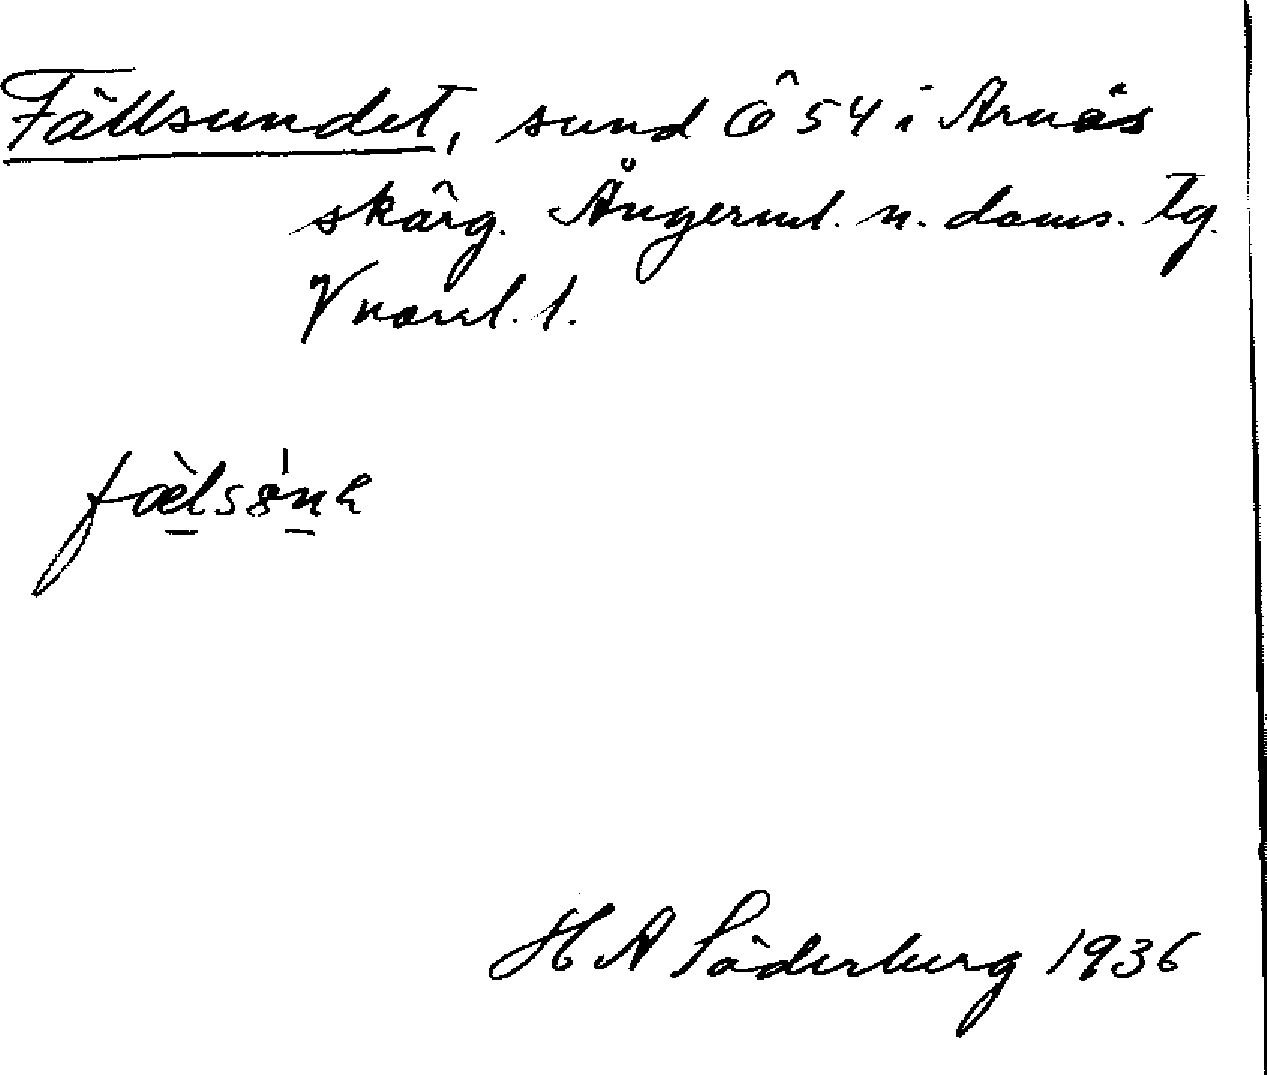 Fällsundet, sund Ö 54 i Arnäs
skärg. Ångerml. n. doms. tg.
Vnorrl. l.
H A Söderberg 1936